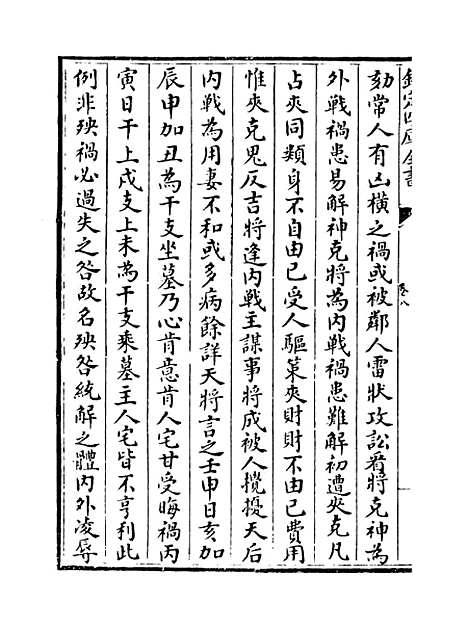 欽定四庫全書
卷八
劾常人有凶橫之禍或被鄰人雷狀攻訟看將克神為
外戰禍患易解神克將為内戰禍患難解初遭夾克凡
占夾同類身不自由己受人驅策夾財財不由己費用
惟夾克鬼反吉將逢内戰主謀事將成被人攪擾天后
内戰為用妻不和或多病餘詳天將言之壬申日亥加
辰申加丑為干支坐墓乃心肯意肯人宅甘受晦禍丙
寅日干上戌支上未為干支乘墓主人宅皆不亨利此
例非殃禍必過失之咎故名殃咎統解之體内外凌辱